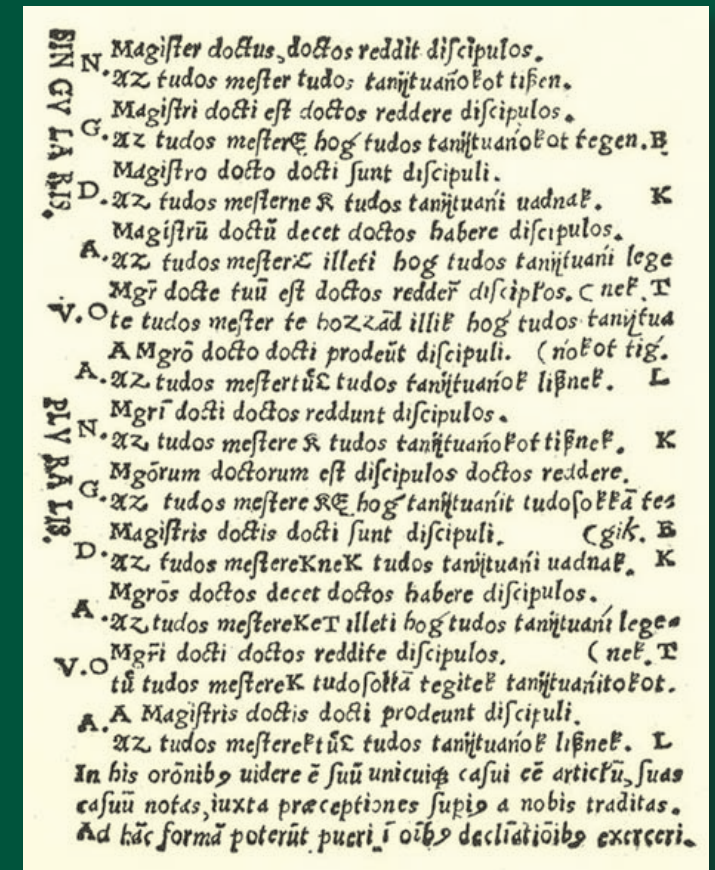 SINGVLARIS.
N. Magiſter doctus, doctos reddit diſcipulos.
AZ tudos meſter tudos tanĳtuańokot tißen.
G. Magiſtri docti eſt doctos reddere diſcipulos.
AZ tudos meſterE hoǵ tudos tanĳtuańokot tegen. E
D. Magiſtro docto docti ſunt diſcipuli.
AZ tudos meſterne K tudos tanĳtuańi uadnak. K
A. Magiſtrū doctū decet doctos habere diſcipulos.
AZ tudos meſterT illeti hog tudos tanĳtuańi lege
V. O Mgr̄ docte tuū eſt doctos redder̄ diſcipłos. ( nek. T
te tudos meſter te hozzād illik hog tudos tanĳtua
A. A Mgrō docto docti prodeūt diſcipuli. (ńokot tig.
AZ tudos meſtertűL tudos tanĳtuańok lißnek. L
PLVRALIS.
N. Mgrī docti doctos reddunt diſcipulos.
AZ tudos meſtere K tudos tanĳtuańokot tißnek. K
G. Mgōrum doctorum eſt diſcipulos doctos reddere.
AZ tudos meſtere KE hoǵ tanĳtuańit tudoſokkā te⸗
D. Magiſtris doctis docti ſunt diſcipuli. (gik. E
AZ tudos meſtereKneK tudos tanĳtuańi uadnak. K
A. Mgrōs doctos decet doctos habere diſcipulos.
AZ tudos meſtereKeT illeti hoǵ tudos tanĳtuańi lege⸗
V. O Mgr̄i docti doctos reddite diſcipulos. ( nek. T
tű tudos meſtereK tudoſokkā tegitek tanĳtuańitokot.
A. A Magiſtris doctis docti prodeunt diſcipuli.
AZ tudos meſterektűL tudos tanĳtuańok lißnek. L
In his orōnibꝰ uidere ē ſuū unicuiqꝫ caſui eē articłū, ſuas
caſuū notas, iuxta præceptiones ſupiꝰ a nobis traditas.
Ad hāc formā poterūt pueri ī oībꝰ decliātiōibꝰ exerceri.